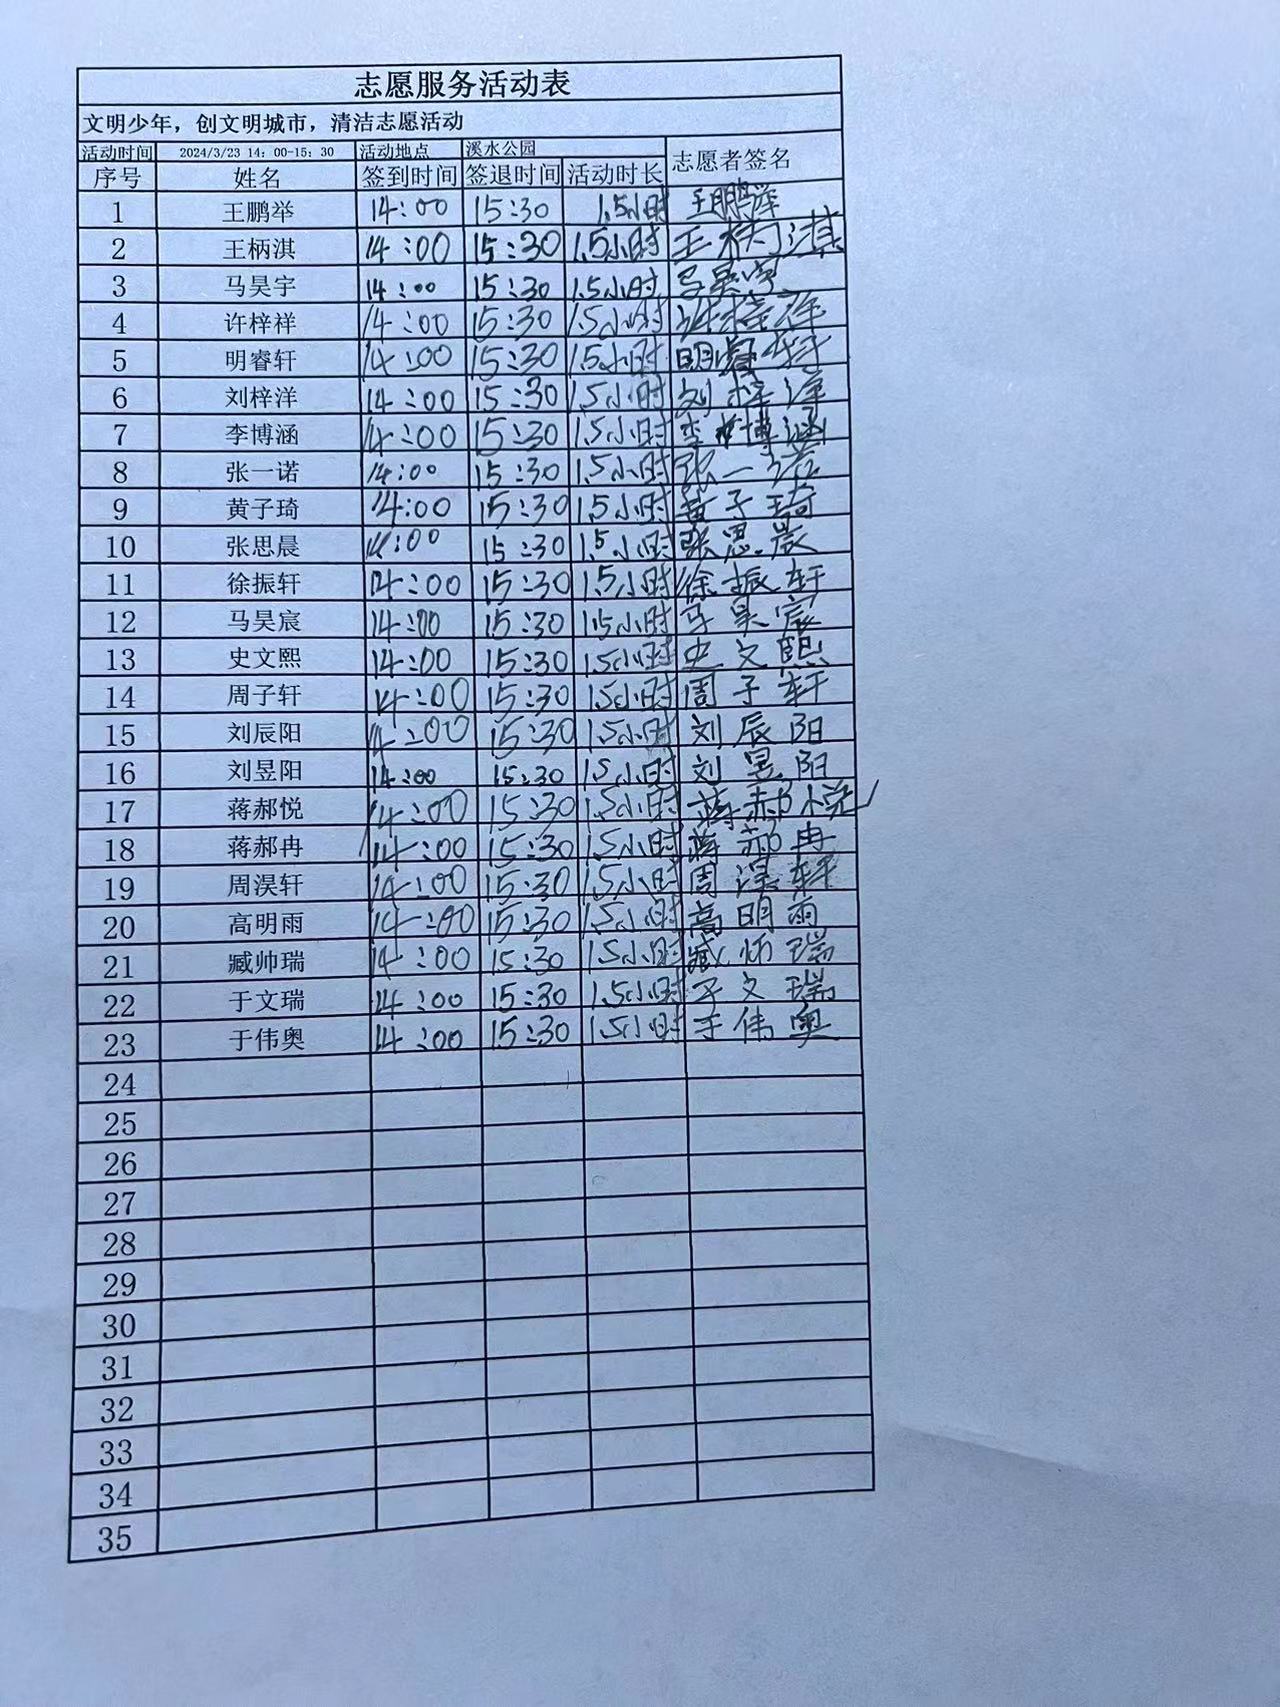 志愿服务活动表
文明少年，创文明城市，清洁志愿活动
活动时间 2024/3/23 14：00-15：30 活动地点 溪水公园 志愿者签名
序号 姓名 签到时间 签退时间 活动时长
1 王鹏举 14:00 15:30 1.5小时 王鹏举
2 王柄淇 14:00 15:30 1.5小时 王柄淇
3 马昊宇 14:00 15:30 1.5小时 马昊宇
4 许梓祥 14:00 15:30 1.5小时 许梓祥
5 明睿轩 14:00 15:30 1.5小时 明睿轩
6 刘梓洋 14:00 15:30 1.5小时 刘梓洋
7 李博涵 14:00 15:30 1.5小时 李博涵
8 张一诺 14:00 15:30 1.5小时 张一诺
9 黄子琦 14:00 15:30 1.5小时 黄子琦
10 张思晨 14:00 15:30 1.5小时 张思晨
11 徐振轩 14:00 15:30 1.5小时 徐振轩
12 马昊宸 14:00 15:30 1.5小时 马昊宸
13 史文熙 14:00 15:30 1.5小时 史文熙
14 周子轩 14:00 15:30 1.5小时 周子轩
15 刘辰阳 14:00 15:30 1.5小时 刘辰阳
16 刘昱阳 14:00 15:30 1.5小时 刘昱阳
17 蒋郝悦 14:00 15:30 1.5小时 蒋郝悦
18 蒋郝冉 14:00 15:30 1.5小时 蒋郝冉
19 周淏轩 14:00 15:30 1.5小时 周淏轩
20 高明雨 14:00 15:30 1.5小时 高明雨
21 臧帅瑞 14:00 15:30 1.5小时 臧帅瑞
22 于文瑞 14:00 15:30 1.5小时 于文瑞
23 于伟奥 14:00 15:30 1.5小时 于伟奥
24
25
26
27
28
29
30
31
32
33
34
35